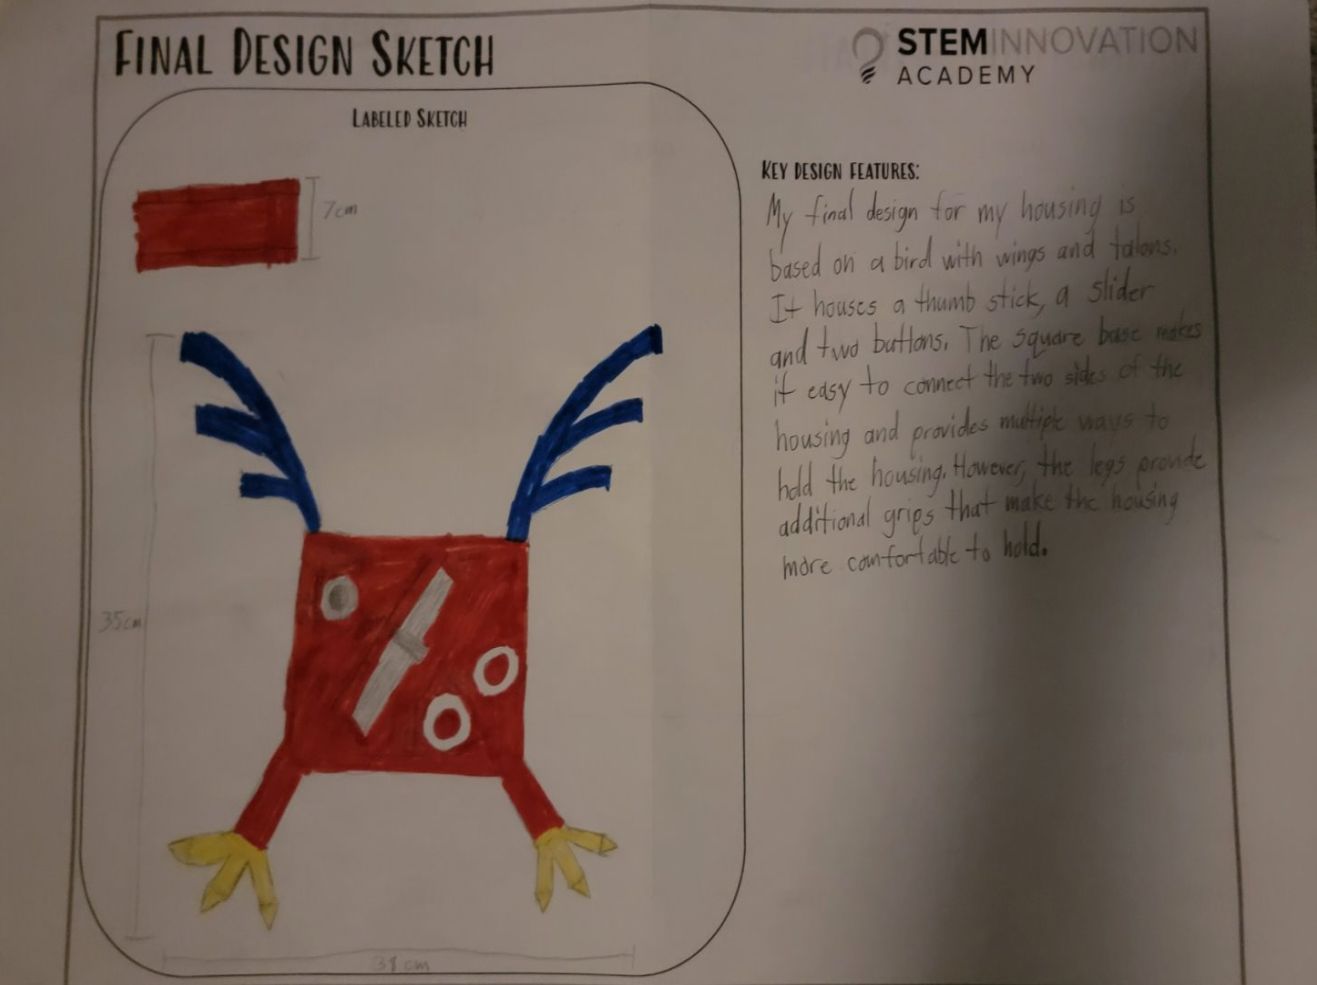 FINAL DESIGN SKETCH
STEMINNOVATION
ACADEMY
LABELED SKETCH
7cm
35cm
cm
KEY DESIGN FEATURES:
My final design for my housing is
based on a bird with wings and talons.
It houses a thumb stick, a slider
and two buttons. The square base makes
it easy to connect the two sides of the
housing and provides multiple ways to
hold the housing. However, the legs provide
additional grips that make the housing
more comfortable to hold.